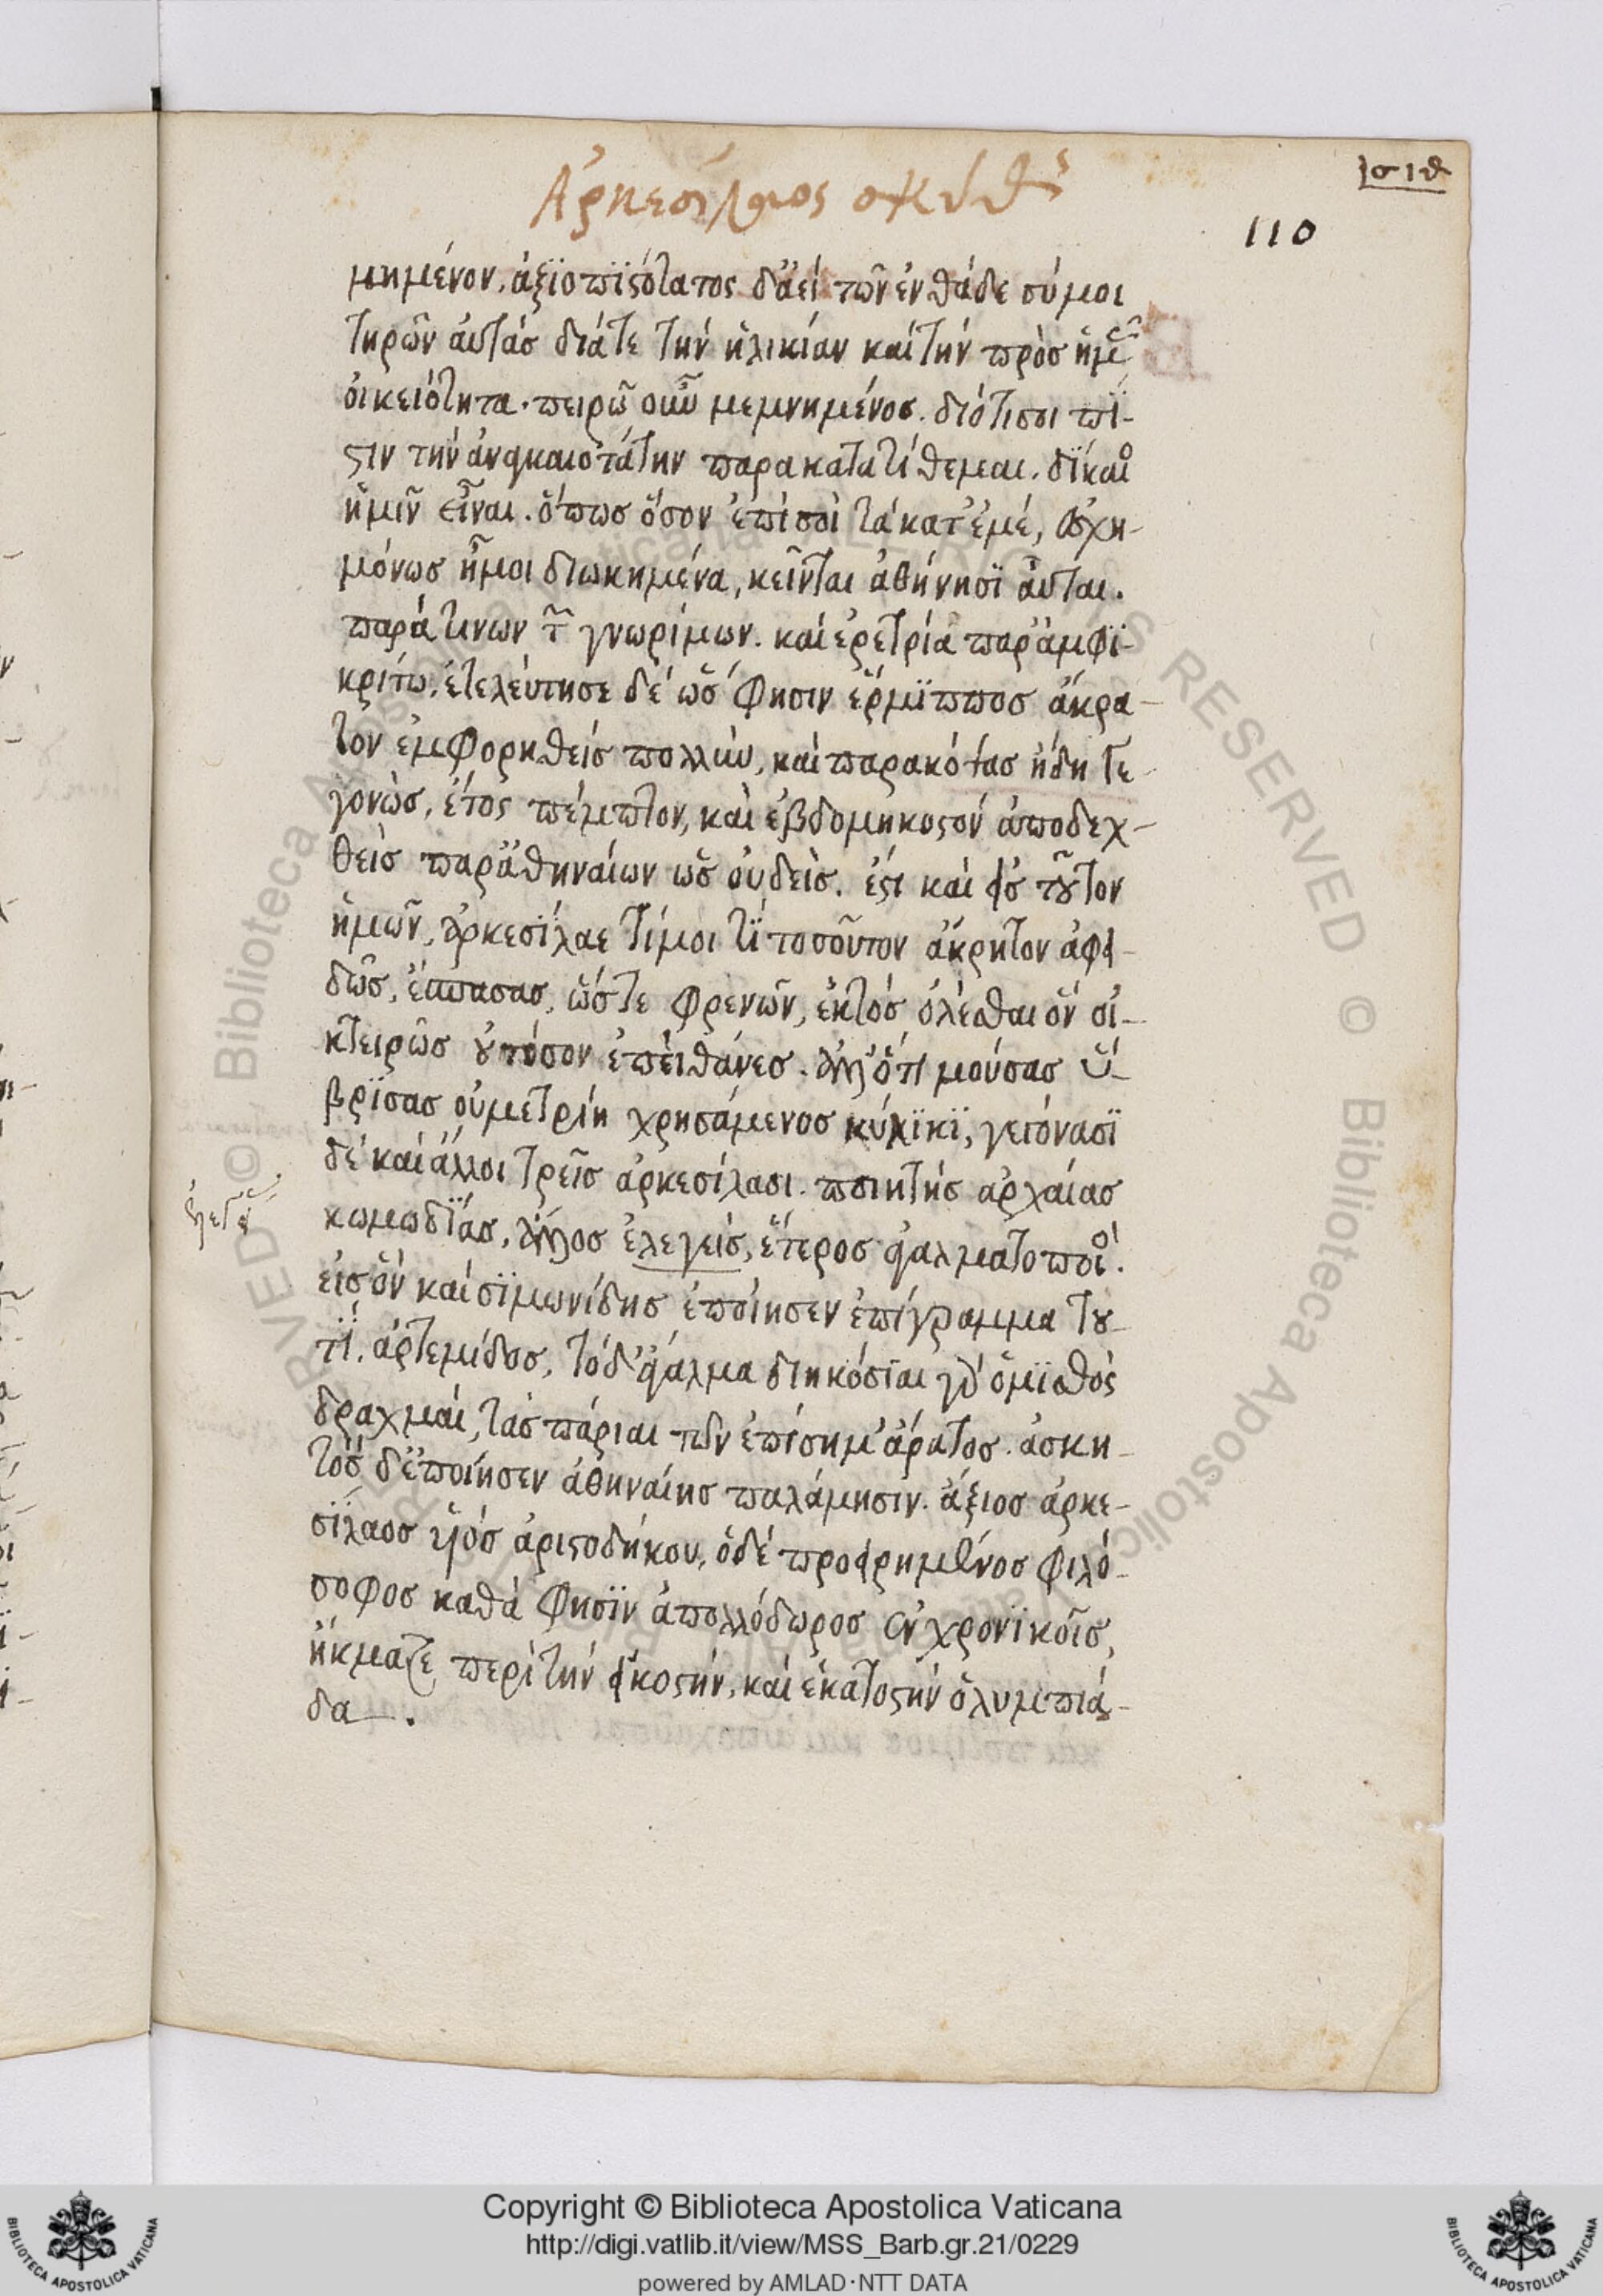 Ἀρκεσίλαος
σιθ
110
μημένον. ἀξϊοπϊςότατος δ'ἀεί τῶν ἐνθάδε σύ μοι
τηρῶν αὐτάσ διά τε τήν ἡλικίαν καί τήν πρὸσ ἡμᾶς
οἰκειότητα. πειρῶ οὖν μεμνημένοσ. διότι σοι πί-
ςιν τήν ἀναγκαιοτάτην παρακατατίθεμαι. δίκαιος
ἡμῖν εἶναι. ὅπωσ ὅσον ἐπὶ σοὶ τά κατ' ἐμέ, εὐσχη-
μόνωσ ἦ μοι διωκημένα, κεῖνται ἀθήνησϊ αὗται.
παρά τινων τῶν γνωρίμων. καί ἐρετρία παρ' ἀμφϊ-
κρίτω. ἐτελεύτησε δέ ὥς φησιν ἕρμϊπποσ ἄκρα-
τον ἐμφορηθείσ πολλὺν, καί παρακόψασ ἤδη γε-
γονὼσ, ἔτος πέμπτον, καί ἑβδομηκοςόν ἀποδεχ-
θείσ παρ' ἀθηναίων ὡς οὐδείσ. ἔςι καί εἰς τοῦτον
ἡμῶν, ἀρκεσίλαε τί μοι τί τοσοῦτον ἄκρητον ἀφει-
δῶς, ἔσπασας, ὥστε φρενῶν, ἐκτόσ ὀλέσθαι ὅν οἰ-
κτειρῶσ οὐ τόσον ἐπεὶ θάνεσ. ἀλλ' ὅτι μούσασ ὕ-
βρϊσασ οὐ μετρίη χρησάμενοσ κύλϊκϊ, γεγόνασϊ
δέ καί ἄλλοι τρεῖσ ἀρκεσίλαοι. ποιητήσ ἀρχαίασ
κωμωδΐασ. ἄλλοσ ἐλεγείσ, ἕτεροσ ἀγαλματοποιός.
εἰσ ὅν καί σϊμωνίδησ ἐποίησεν ἐπίγραμμα του-
τί. ἀρτεμίδοσ, τόδ' ἄγαλμα διηκόσϊαι γάρ ὁ μϊσθός
δραχμαί, τάσ πάριαι τῶν ἐπίσημ' ἄρατοσ. ἀσκη-
τόσ δ' ἐποίησεν ἀθηναίησ παλάμησιν. ἄξιοσ ἀρκε-
σίλαοσ υἱόσ ἀριςοδήκου, ὁ δέ προειρημένοσ φιλό-
σοφοσ καθά φησϊν ἀπολλόδωροσ ἐν χρονϊκοῖσ,
ἤκμαζε περί τήν εἰκοςήν, καί ἑκατοςήν ὀλυμπιά-
δα.
Copyright © Biblioteca Apostolica Vaticana
http://digi.vatlib.it/view/MSS_Barb.gr.21/0229
powered by AMLAD·NTT DATA